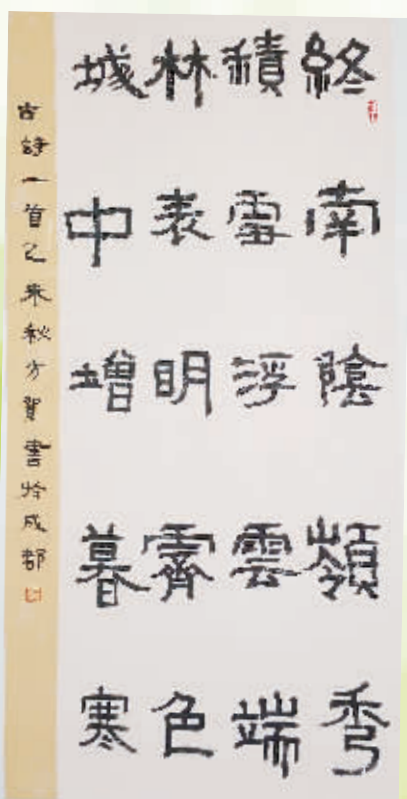 終南陰嶺秀
積雪浮雲端
林表明霽色
城中增暮寒
古詩一首乙未秋方賀書於成都